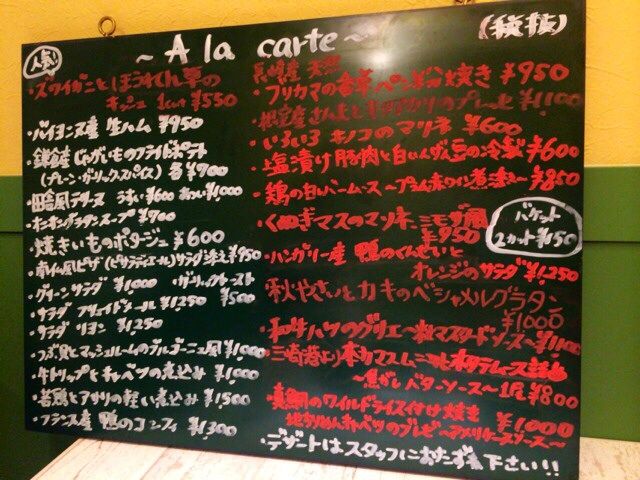 人気!
~ A la carte ~
(税抜)
・ズワイガニとほうれん草の
キッシュ 1cut ¥550
・バイヨンヌ産 生ハム ¥950
・鎌倉産 じゃがいものフライドポテト
(プレーン・ガーリック・スパイス) 各¥700
・田舎風テリーヌ うすい¥600 あつい¥1,000
・オニオングラタンスープ ¥700
・焼きいものポタージュ ¥600
・南仏風ピザ (ピサラディエール) サラダ添え ¥950
・グリーンサラダ ¥1000 ・ガーリックトースト
・サラダ ¥1,250 ¥500
・サラダ リヨン ¥1,250
・つぶ貝とマッシュルームのブルゴーニュ風 ¥1,000
・牛トリップとキャベツの煮込み ¥1,000
・若鶏とアサリの軽い煮込み ¥1,500
・フランス産 鴨のコンフィ ¥1,300
長崎産 天然
・ブリカマの香草パン粉焼き ¥950
¥1,100
・いろいろキノコのマリネ ¥600
・塩漬け豚肉と白いんげん豆の冷製 ¥600
・鶏の白レバームース ~プラム赤ワイン煮添え~ ¥850
・くぬぎマスのマリネ ミモザ風
¥950
バゲット
2カット ¥150
・ハンガリー産 鴨のくんせいと
オレンジのサラダ ¥1,250
・秋やさいとカキのベシャメルグラタン
¥1,000
・和牛ハツのグリエ ~粒マスタードソース~ ¥1,100
~焦がしバターソース~ 1尾 ¥800
・真鯛のワイルドライス付け焼き ¥1,000
キャベツのブレゼ ~アメリケーヌソース~
・デザートはスタッフにおたずね下さい!!